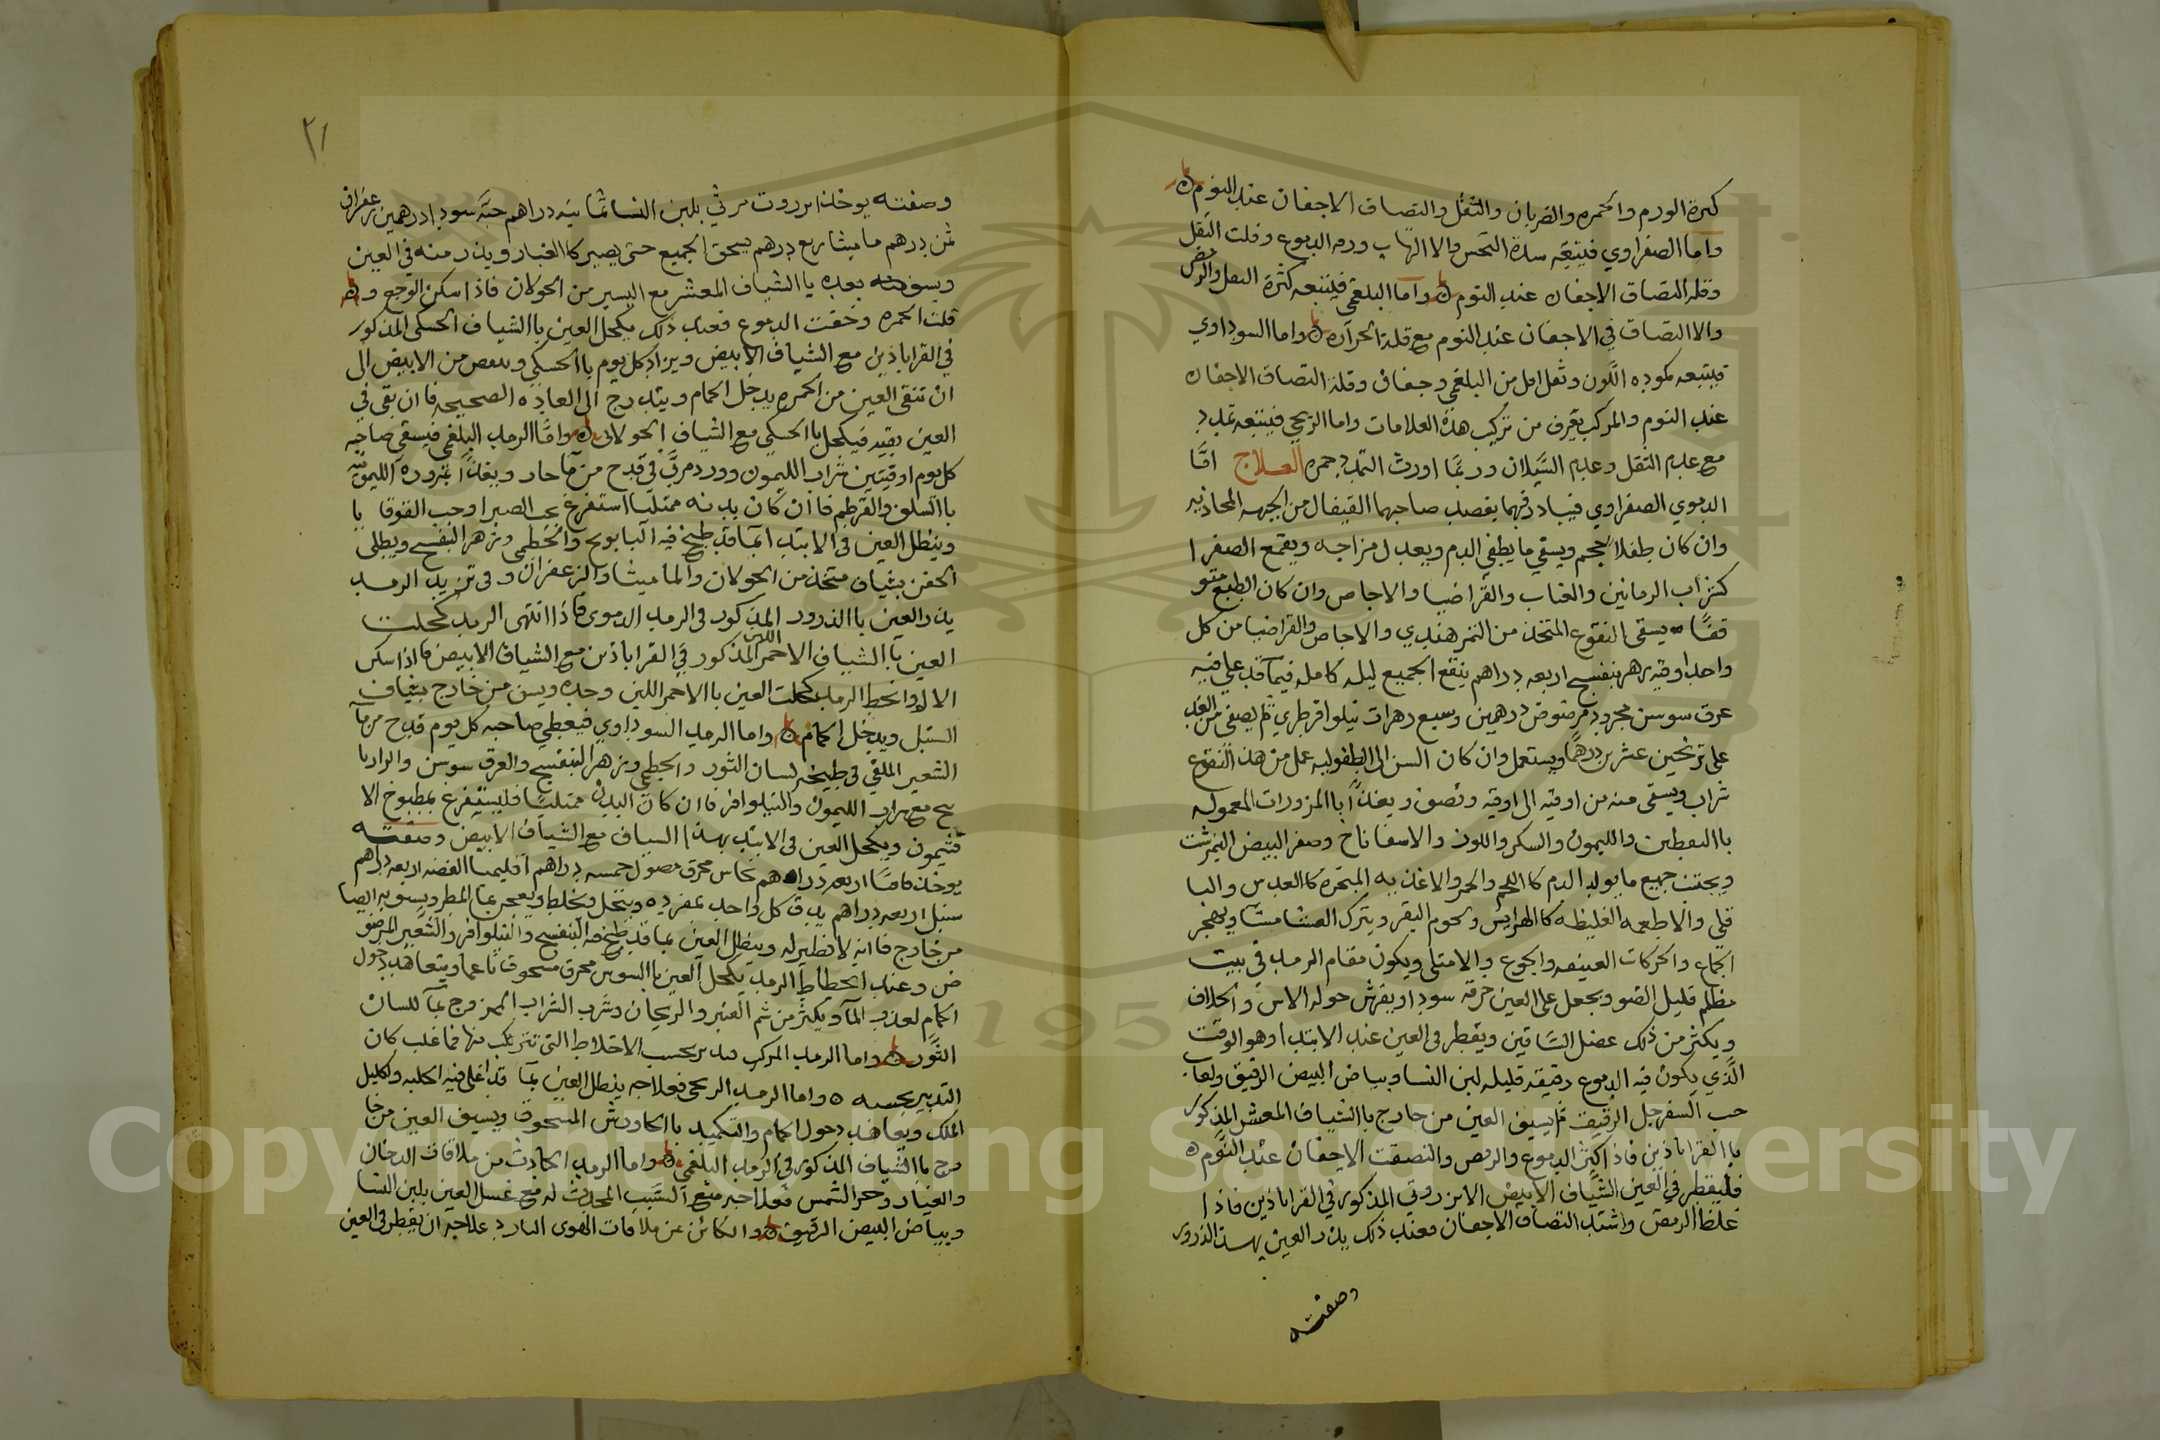 كثرة الورم والحمره والضربان والثقل والتصاق الاجفان عند النوم
واما الصفراوي فيتبعه شدة النخس والالتهاب ورقه الدموع وقلت الثقل
وقله التصاق الاجفان عند النوم واما البلغمي فيتبعه كثرة الثقل والرمص
والالتصاق في الاجفان عند النوم مع قلة الحراره واما السوداوي
فيتبعه كموده اللون وثقل اقل من البلغمي وجفاف وقلة التصاق الاجفان
عند النوم والمركب يعرف من تركيب هذه العلامات واما الريحي فيتبعه تمدد
مع عدم الثقل وعدم السيلان وربما اورث التمدد حمره العلاج امّا
الدموي الصفراوي فيبادر فيهما بفصد صاحبهما القيفال من الجهه المحاذيه
وان كان طفلا يحجم ويسقي ما يطفي الدم ويعدل مزاجه ويقمع الصفرا
كشراب الرمانين والعناب والقراضيا والاجاص وان كان الطبع متو
قفًا يسقى النقوع المتخذ من التمر هندي والاجاص والقراضيا من كل
واحد اوقيه زهر بنفسج اربعه دراهم ينقع الجميع ليله كامله فيما قد غلي فيه
عرق سوسن مجرود مرضوض درهمين وسبع زهرات نيلوافر طري ثم يصفى من الغد
على ترنجبين عشرين درهمًا ويستعمل وان كان السن الى الطفوليه عمل من هذا النقوع
شراب ويسقى منه من اوقيه الى اوقيه ونصف ويغذّا باالمزورات المعموله
باليقطين والليمون والسكر واللوز والاسفاناخ وصفر البيض النيمرشت
ويجتنب جميع ما يولد الدم كااللحم والحلو والاغذيه المبخره كاالعدس والبا
قلي والاطعمه الغليظه كاالهرايس ولحوم البقر ويترك العشا مسّا ويهجر
الجماع والحركات العنيفه والجوع والامتلى ويكون مقام الرمد في بيت
مظلم قليل الضو ويجعل على العين خرقه سودا ويفرش حوله الاس والخلاف
ويكثر من ذلك عضل الساقين ويقطر في العين عند الابتدا وهو الوقت
الّذي يكون فيه الدموع رقيقه قليله لبن النسا وبياض البيض الرقيق ولعاب
حب السفرجل الرقيق ثم يسيف العين من خارج باالشياف المعشر المذكور
باالقراباذين فاذا كثر الدموع والرمص والتصقت الاجفان عند النوم
فليقطر في العين الشّياف الابيض الانزروتي المذكور في القراباذين فاذا
غلظ الرمص واشتد التصاق الاجفان فعند ذلك يذر العين بهذا الذرور
وصفته
٢١
وصفته يوخذ انزروت مربّي بلبن النسا ثمانيه دراهم حبّه سودا درهمين زعفران
ثمن درهم ماميثا ربع درهم يسحق الجميع حتى يصير كاالغبار ويذر منه في العين
ويسوفه بعده باالشياف المعشر مع اليسير من الحولان فاذا سكن الوجع و
قلت الحمره وخفت الدموع فعند ذلك يكحل العين باالشياف الحسكي المذكور
في القراباذين مع الشياف الابيض ويزاد كل يوم باالحسكي وينقص من الابيض الى
ان تنقى العين من الحمره يدخل الحمام ويتدرج الى العاده الصحيحه فاان بقى في
العين بقيه فيكحل باالحسكي مع الشياف الحولاني وامّا الرمد البلغمي فيسقي صاحبه
كل يوم اوقيتين شراب الليمون وورد مربّي في قدح من مآ حار ويغذّا بمزورة الليمونيه
باالسلق والقرطم فاان كان بدنه ممتلئًا استفرغ بحب الصبر او حب القوقايا
وينطل العين في الابتدا بما قد طبخ فيه البابونج والخطمي وزهر البنفسج ويطلى
الجفن بشياف متخذ من الحولان والماميثا والزعفران وفي تزيد الرمد
يذر العين باالذرور المذكور في الرمد الدموي فاذا انتهى الرمد كحلت
العين باالشياف الاحمر اللين المذكور في القراباذين مع الشياف الابيض فاذا سكن
الالم وانحط الرمد كحلت العين باالاحمر اللين وحده ويسن من خارج بشياف
السنبل ويدخل الحمام واما الرمد السوداوي فيعطي صاحبه كل يوم قدح من مآ
الشعير الملقى في طبيخه لسان الثور والخطمي وزهر البنفسج والعرق سوسن والرازيا
نج مع شراب الليمون والنيلوافر فاان كان البدن ممتلئًا فليستفرغ بمطبوخ الا
فتيمون ويكحل العين في الابتدا بهذا الشياف مع الشياف الابيض وصفته
يوخذ ماميثًا اربعه دراهم نحاس محرق مصول خمسه دراهم اقليميا الفضه اربعه دراهم
سنبل اربعه دراهم يدق كل واحد بمفرده وينخل ويخلط ويعجن بمآ المطر ويسوف به ايضا
من خارج فاانه لا نظير له وينطل العين بما قد طبخ فيه البنفسج والنيلوافر والشعير المرضو
ض وعند انحطاط الرمد يكحل العين باالسوس محرق مسحوق ناعما ويتعاهد دخول
الحمام لعذوب المآ ويكثر من شم العنبر والريحان وشرب الشراب الممزوج بمآ لسان
الثّور واما الرمد المركب يدبر بحسب الاخلاط التى تتركب منها فما غلب كان
التدبير بحسبه واما الرمد الريحي فعلاجه ينطل العين بمآ قد اغلي فيه الحلبه واكليل
الملك ويعاهد دخول الحمام والتكميد باالجاورش المسحوق ويسيف العين من خا
رج باالشياف المذكور في الرمد البلغمي واما الرمد الحادث من ملاقات الدخان
والغبار وحر الشمس فعلاجه منع السبب المحدث له مع غسل العين بلبن النسا
وبياض البيض الرقيق والكائن عن ملاقات الهوى البارد علاجه ان يقطر في العين